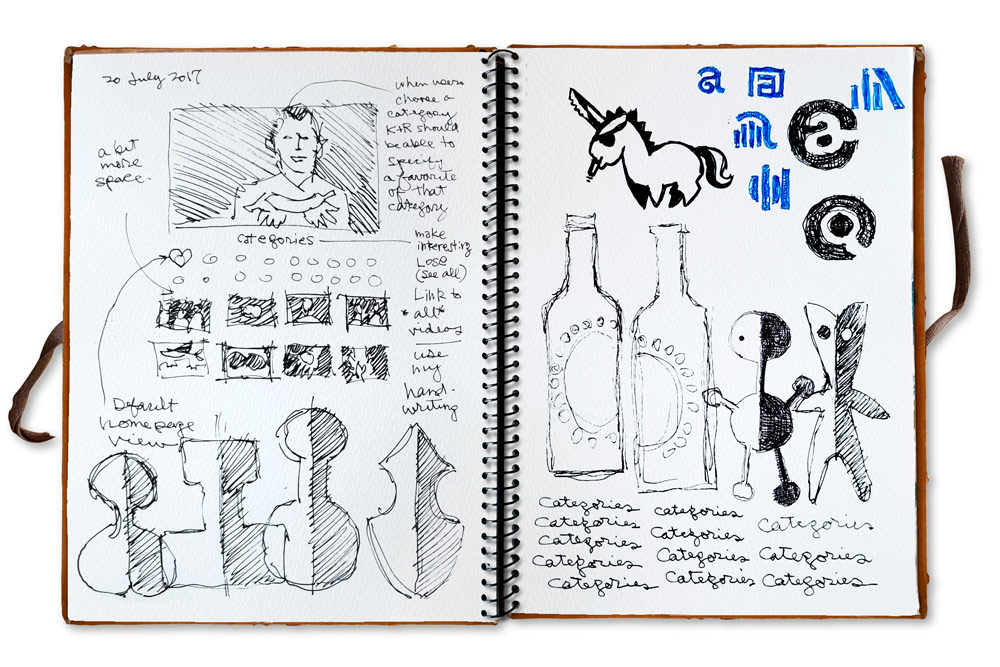 20 July 2017
when users
choose a
category
K+R should
be able to
specify
a favorite
of that
category
a bit
more
space.
categories
make
interesting
LOSE
(see all)
Link to
*all*
videos
use
my
hand-
writing
Default
homepage
view
a
a
a
a
Categories
Categories
Categories
Categories
Categories
Categories
Categories
Categories
Categories
Categories
Categories
Categories
Categories